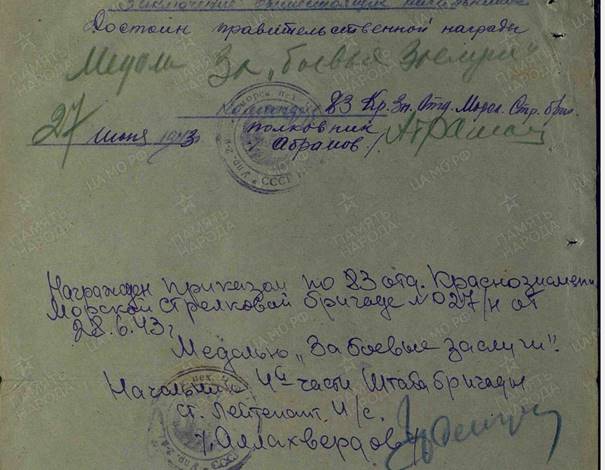 Заключение вышестоящих начальников
Достоин правительственной награды
Медали За „боевые Заслуги“
Командир 83 Кр. Зн. Отд. Морск. Стр. бриг.
27 июня 1943
полковник
/ Абрамов /.
СССР
Награжден приказом по 83 отд. Краснознамен.
Морской стрелковой бригаде № 027/н от
28.6.43 г.
Медалью „За боевые заслуги“.
Начальник 4й части Штаба бригады
ст. лейтенант и/с.
/ Аллахвердов /
ПАМЯТЬ НАРОДА
ЦАМО РФ